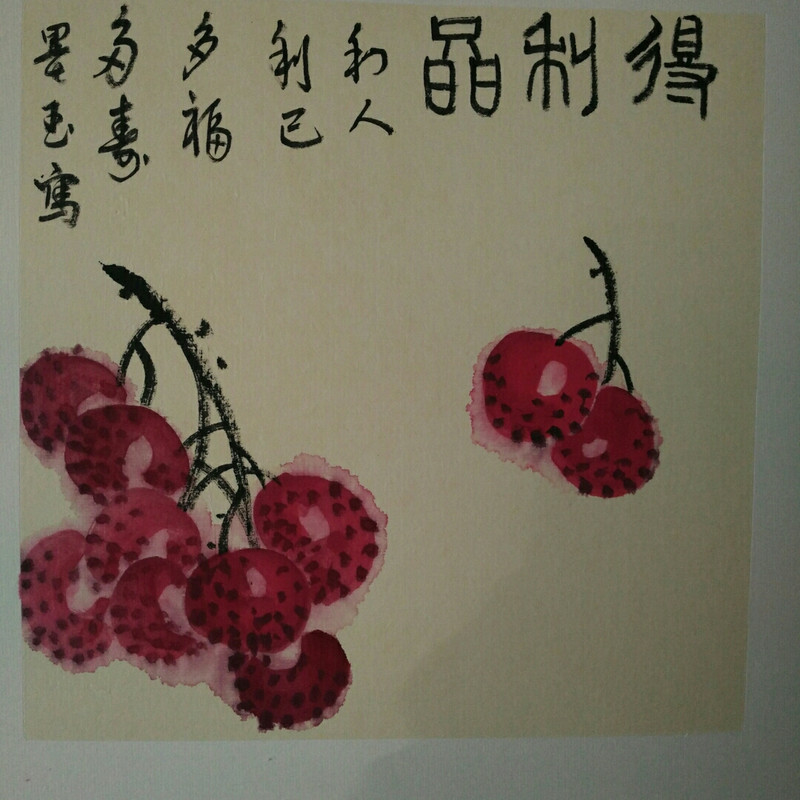 得利晶
利人
利己
多福
多壽
墨玉寫